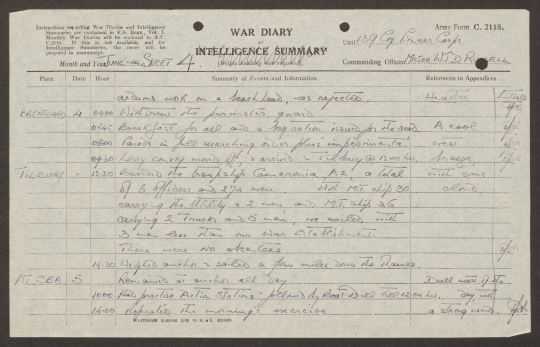 Instructions regarding War Diaries and Intelligence
Summaries are contained in F.S. Regs., Vol. I.
Monthly War Diaries will be enclosed in A.F.
C.2119. If this is not available, and for
Intelligence Summaries, the cover will be
prepared in manuscript.
WAR DIARY
or
INTELLIGENCE SUMMARY
Army Form C. 2118.
Unit 139 Coy Pioneer Corps
Month and Year JUNE SHEET 4
Commanding Officer Major W.J.D.
Place Date Hour Summary of Events and Information References to Appendices
work on a beach head, was rejected. Weather
BRENTWOOD 4 0400 Withdrew the perimeter guard
0545 Breakfast for all and a bag ration issued for the road. A cool
0800 Parade in full marching order plus impedimenta
0930 Lorry convoy moved off & arrived Tilbury @ hrs. breeze
TILBURY 13:30 Boarded the troopship Cameronia, a total with some
of 6 officers and 274 men. With M.T. ship 30 cloud.
carrying the Utility & 2 men and M.T. ship 36
carrying 2 Trucks and 5 men, we sailed with
3 men less than our War Establishment.
There were NO absentees
19:30 Weighed anchor & sailed a few miles down the Thames.
AT SEA 5 Remained at anchor all day Dull most of the
1000 Had practice Action Stations followed by Boat Drill till hrs. day with
14:00 Repeated the morning's exercise a strong wind.